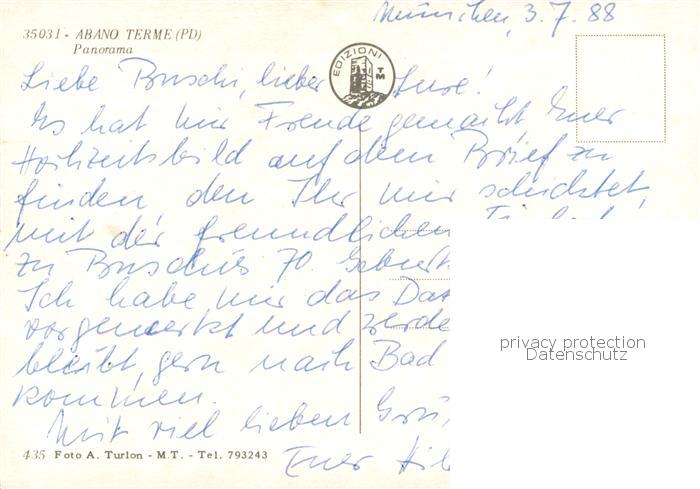 München, 3.7.88
35031 - ABANO TERME (PD)
Panorama
EDIZIONI
TM
Liebe Buschi, lieber
Es hat mir Freude gemacht, Euer
Hochzeitsbild auf dem Brief zu
finden den Ihr mir schicktet,
mit der freundlichen
zu Buschis 70.
Ich habe mir das
vorgemerkt und werde
bleibt, gern nach Bad
kommen.
Mit viel lieben
Euer
privacy protection
Datenschutz
435 Foto A. Turlon - M.T. - Tel. 793243